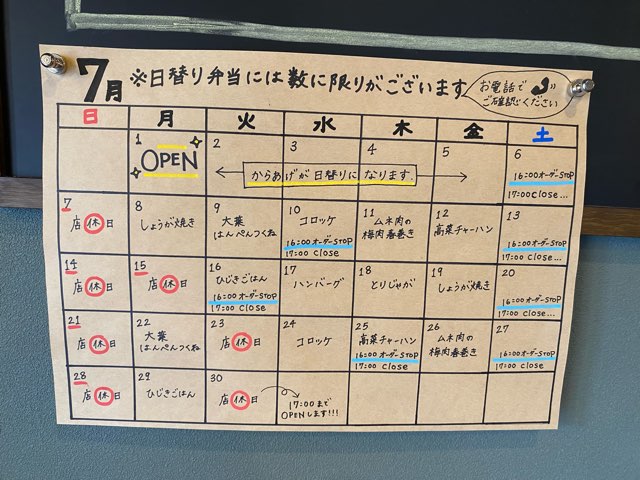 7月 ※日替り弁当には数に限りがございます
お電話で
ご確認ください
日 月 火 水 木 金 土
1
OPEN
2
3
4
5
からあげが日替りになります。
6
16:00オーダーSTOP
17:00close...
7
店休日
8
しょうが焼き
9
大葉
はんぺんつくね
10
コロッケ
16:00オーダーSTOP
17:00 close
11
ムネ肉の
梅肉春巻き
12
高菜チャーハン
13
16:00オーダーSTOP
17:00 close...
14
店休日
15
店休日
16
ひじきごはん
16:00オーダーSTOP
17:00 close
17
ハンバーグ
18
とりじゃが
19
しょうが焼き
20
16:00オーダーSTOP
17:00 close...
21
店休日
22
大葉
はんぺんつくね
23
店休日
24
コロッケ
25
高菜チャーハン
16:00オーダーSTOP
17:00 close
26
ムネ肉の
梅肉春巻き
27
16:00オーダーSTOP
17:00 close
28
店休日
29
ひじきごはん
30
店休日
17:00まで
OPENします!!!